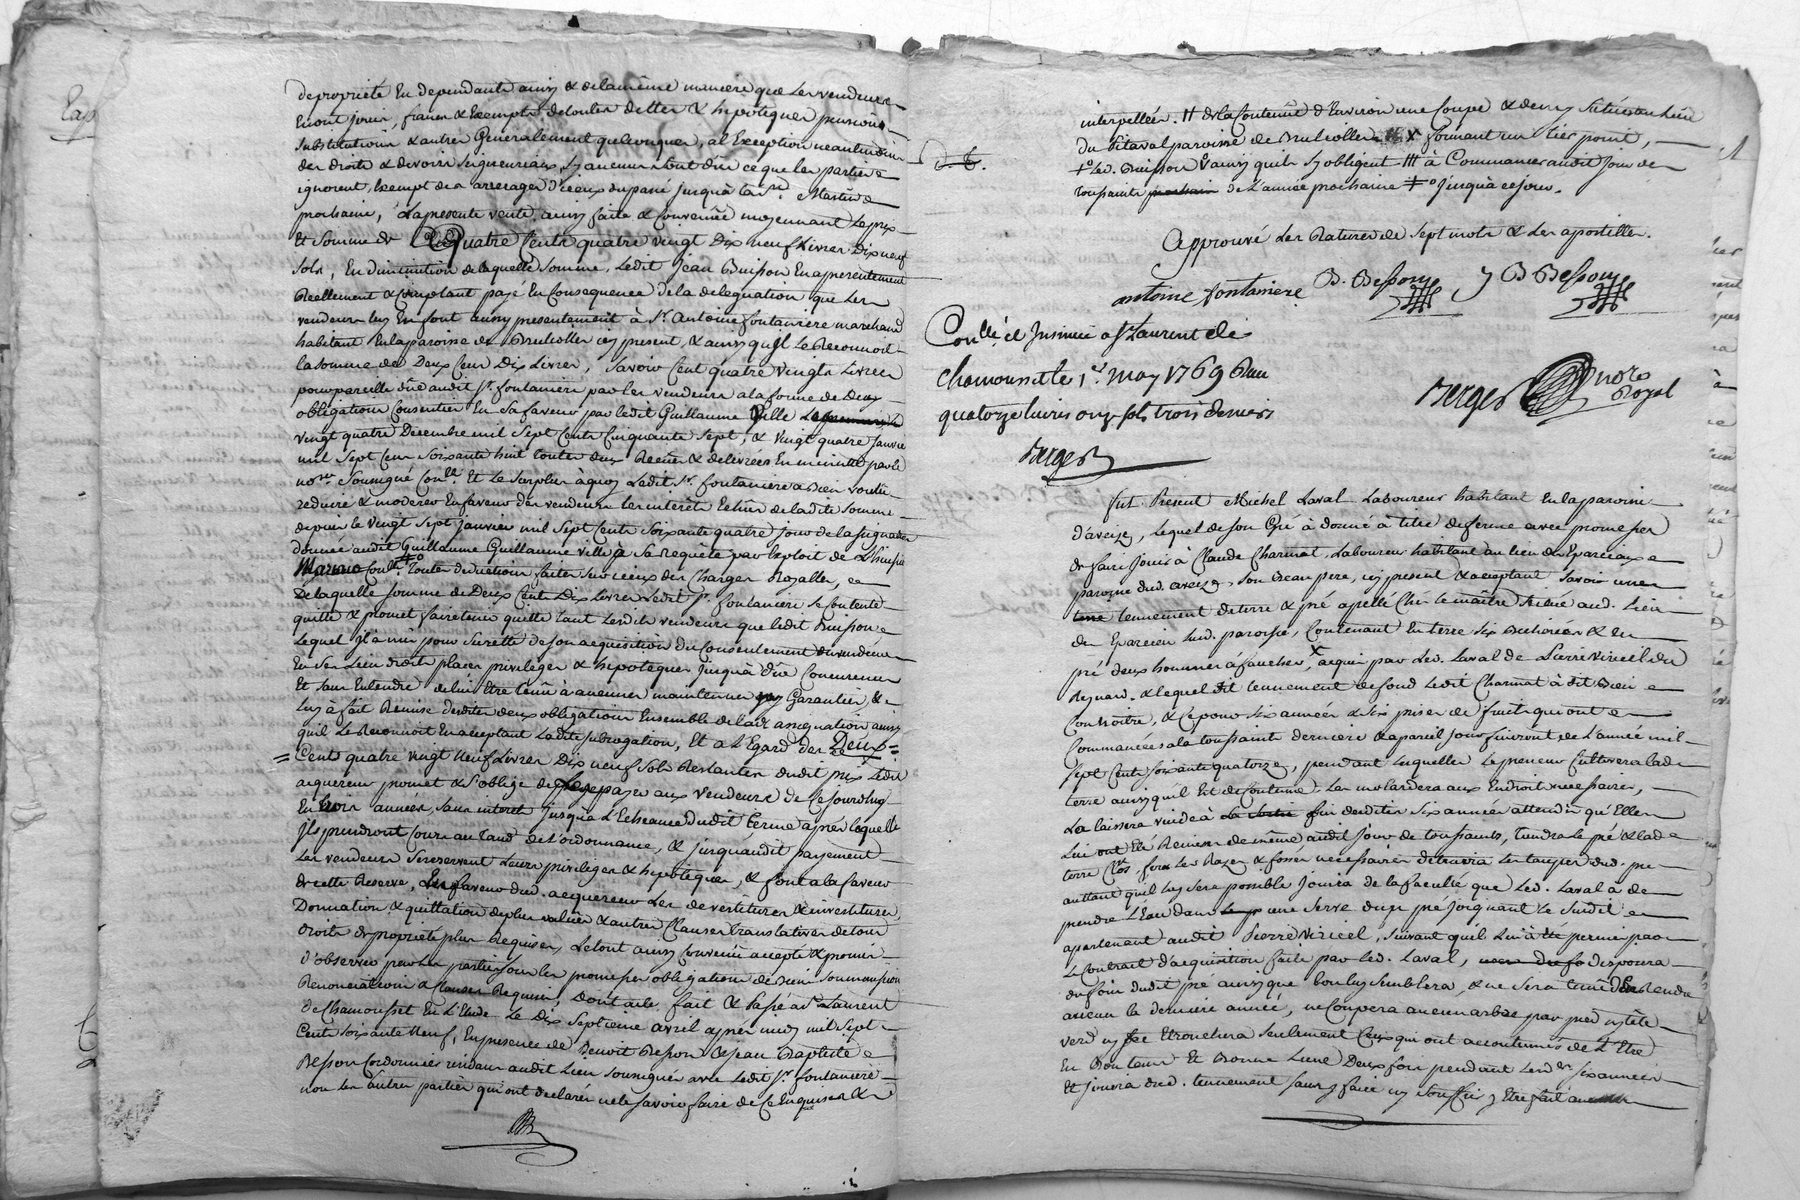 de propriété en dependants ainsy & de la même maniere que les vendeurs
en ont joui, francs & exempts de toutes dettes & hipoteques pensions
substitutions & autres Generalement quelconques, a l'Exception neantmoins
des droits & devoirs seigneuriaux sy aucuns sont dûs ce que les parties
ignorent, exempt des arrerages d'iceux du passé jusqu'à la St. Martin
prochaine, La presente vente ainsy faite & convenüe moyennant le prix
et somme de Quatre Cents quatre vingt Dix neuf Livres Dix neuf
sols, En diminution de laquelle somme, Ledit jean Buisson En a presentement
Reellement & comptant payé En Consequence de la delegation que les
vendeurs luy En font aussy presentement à Sr. Antoine fontaniere marchand
habitant En la paroisse de Brulliolles icy present, & ainsy qu'il le Reconnoit
la somme de Deux Cens Dix Livres, savoir Cent quatre vingts Livres
pour pareille düe audit Sr. fontaniere par les vendeurs a la forme de Deux
obligations Consenties En sa faveur par ledit Guillaume Ville
vingt quatre Decembre mil sept Cents Cinquante sept, & vingt quatre janvier
mil sept Cens soixante huit toutes deux Recües & delivrées En minutte par le
nore. soussigné Conllé. Et le surplus à quoy Ledit Sr. fontaniere a bien voulu
reduire & moderer En faveur des vendeurs les interets Echus de ladite somme
depuis le vingt sept janvier mil sept Cents soixante quatre jour de l'assignation
donnée audit Guillaume Guillaume ville à sa requête par Exploit de L'huissier
Marnio Conllé. toutes deductions faites sur iceux des Charges Royalles,
De laquelle somme de Deux Cent Dix Livres Ledit Sr. fontaniere se contente
quitte & promet faire tenir quitte tant Lesdits vendeurs que ledit Buisson
Lequel il à mis pour sureté de son acquisition du Consentement des vendeurs
En ses Lieu droits places privileges & hipoteques jusqu'à düe Concurrence
Et sans Entendre de luy Etre tenû à aucunes maintenues ny Garanties &
luy à fait Remise desdites deux obligations Ensemble de ladite assignation ainsy
qu'il le Reconnoit En acceptant ladite subrogation, Et a l'Egard des Deux
Cents quatre vingt neuf Livres Dix neuf sols Restantes dudit prix Ledit
acquereur promet & s'oblige de payer aux vendeurs de Ce jourd'huy
En trois années, sans interet jusqu'à l'Echeance dudit terme apres lequel
ils prendront Cours au taux de l'ordonnance, & jusqu'audit payement
Les vendeurs se reservent Leurs privileges & hipoteques, & sont a la faveur
de cette Reserve, En faveur dud. acquereur Les devestitures & investitures,
Donnation & quittation de plus values & autres Clauses translatives de tous
droits de propriété plus Requises, Le tout ainsy Convenü accepté & promis
d'observer par Les parties sous les promesses obligations de biens soumissions
Renonciations & Clauses Requises, Dont acte fait & Passé a St Laurent
de Chamousset En L'Etude Le Dix septieme avril apres midy mil sept
Cent soixante neuf, En presence de Benoit Besson & jean Baptiste
Besson Cordonniers residans audit Lieu soussignés avec Ledit Sr. fontaniere
non Les autres parties qui ont declarés ne le savoir faire de Ce Enquises &
interpellées. # de la Contenüe d'Environ une Coupe & demy située au Lieu
du Pitaval paroisse de Brulliolles X formant un tier point,
+ Led. Buisson ainsy qu'ils s'y obligent # à Commancer audit jour de
toussaints de l'année prochaine ‡ jusqu'à ce jour.
approuvé Les Ratures de sept mots & Les apostilles.
antoine fontaniere B. Besson J B Besson
Conllé et Insinué a St Laurent de
Chamousset le 1er May 1769 Reçu
quatorze livres onze sols trois deniers
Berger
Berger nore Royal
Fut Present Michel Laval Laboureur habitant En la paroisse
d'aveize, Lequel de son Gré à donné à titre de ferme avec promesse
de faire jouir à Claude Charmat, Laboureur habitant au lieu des Eparciaux
paroisse dud. aveize, son Beau pere, icy present & acceptant savoir un
tennement de terre & pré apellé Ché le maitre situé aud. Lieu
des Eparcieu sud. paroisse, Contenant En terre six Bicherées & En
pré deux hommes à faucher, X acquis par Led. Laval de Pierre Viricel du
Reynard, & lequel dit tennement de fond Ledit Charmat à dit bien
Connoitre, & Ce pour six années & six prises de fruits qui ont
Commancées a la toussaints derniere & a pareil jour finiront, de l'année mil
sept Cents soixante quatorze, pendant lesquelles Le preneur Cultivera lad.
terre ainsy quil Est de Coutume, Les molardera aux Endroits necessaires,
La laissera vuide à fin desdites six années attendu qu'Elle
lui ont Eté Remises de même audit jour de toussaints, tiendra Le pré & lad.
terre Clos, fera Les Rases & fossés necessaires detruira Les taupes dud. pré
auttant qu'il luy sera possible jouira de la faculté que Led. Laval à de
prendre L'Eau dans une serve du pré joignant Le susdit
apartenant audit Pierre Viricel, suivant qu'il Lui à permis par
Le Contrait d'acquisition faite par led. Laval, disposera
du foin dudit pré ainsy que bon luy semblera, & ne sera tenû d'En Rendre
aucun la derniere année, ne Coupera aucun arbre par pied ny tête
verd ny sec Etronchera seulement Ceux qui ont accoutumés de L'Etre
En Bon tems Et Bonne Lune Deux fois pendant Lesd. six années
Et jouira dud. tennement sans y faire ny souffrir y Etre fait aucun